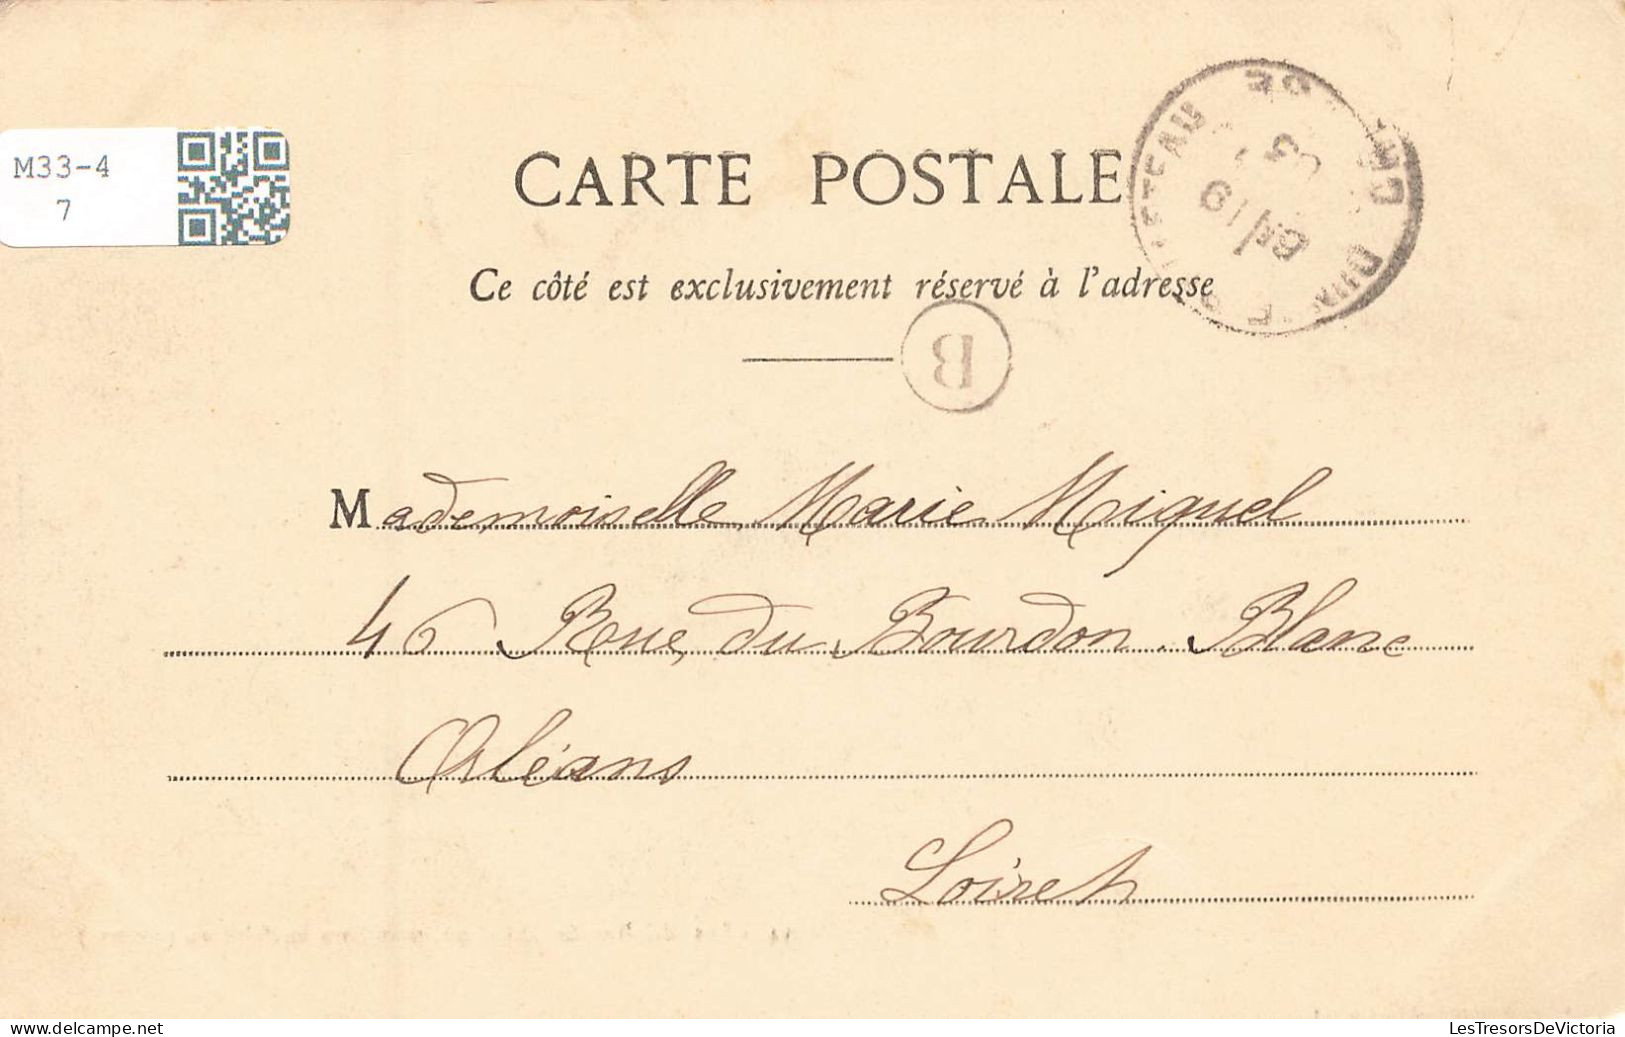 M33-4
7
CARTE POSTALE
Ce côté est exclusivement réservé à l'adresse
B
Mademoiselle Marie Miquel
46 Rue du Bourdon Blanc
Orléans
Loiret
delcampe.net
LesTresorsDeVictoria